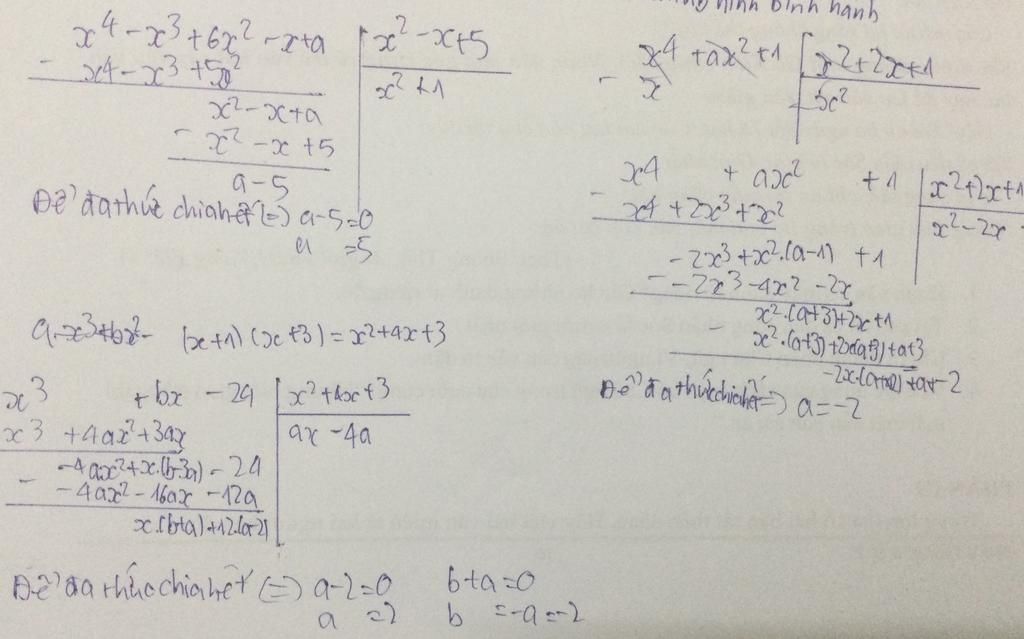 hình bình hành
x⁴ - x³ + 6x² - x + a | x² - x + 5
- x⁴ - x³ + 5x² | x² + 1
x² - x + a
- x² - x + 5
a - 5
Để đa thức chia hết (=) a - 5 = 0
a = 5
x⁴ + ax² + 1 | x² + 2x + 1
- x | x²
x⁴ + ax² + 1 | x² + 2x + 1
- x⁴ + 2x³ + x² | x² - 2x
- 2x³ + x².(a-1) + 1
- - 2x³ - 4x² - 2x
x².(a+3) + 2x + 1
x².(a+3) + 2x(a+3) + a+3
Để đa thức chia hết (=) a = -2
a x³ + bx² -
(x+1)(x+3) = x² + 4x + 3
x³ + bx - 24 | x² + 4x + 3
x³ + 4ax² + 3ax | ax - 4a
-4ax² + x.(b-3a) - 24
- -4ax² - 16ax - 12a
x.(b+a) + 12.(a-2)
Để đa thức chia hết (=) a - 2 = 0 b + a = 0
a = 2 b = -a = -2